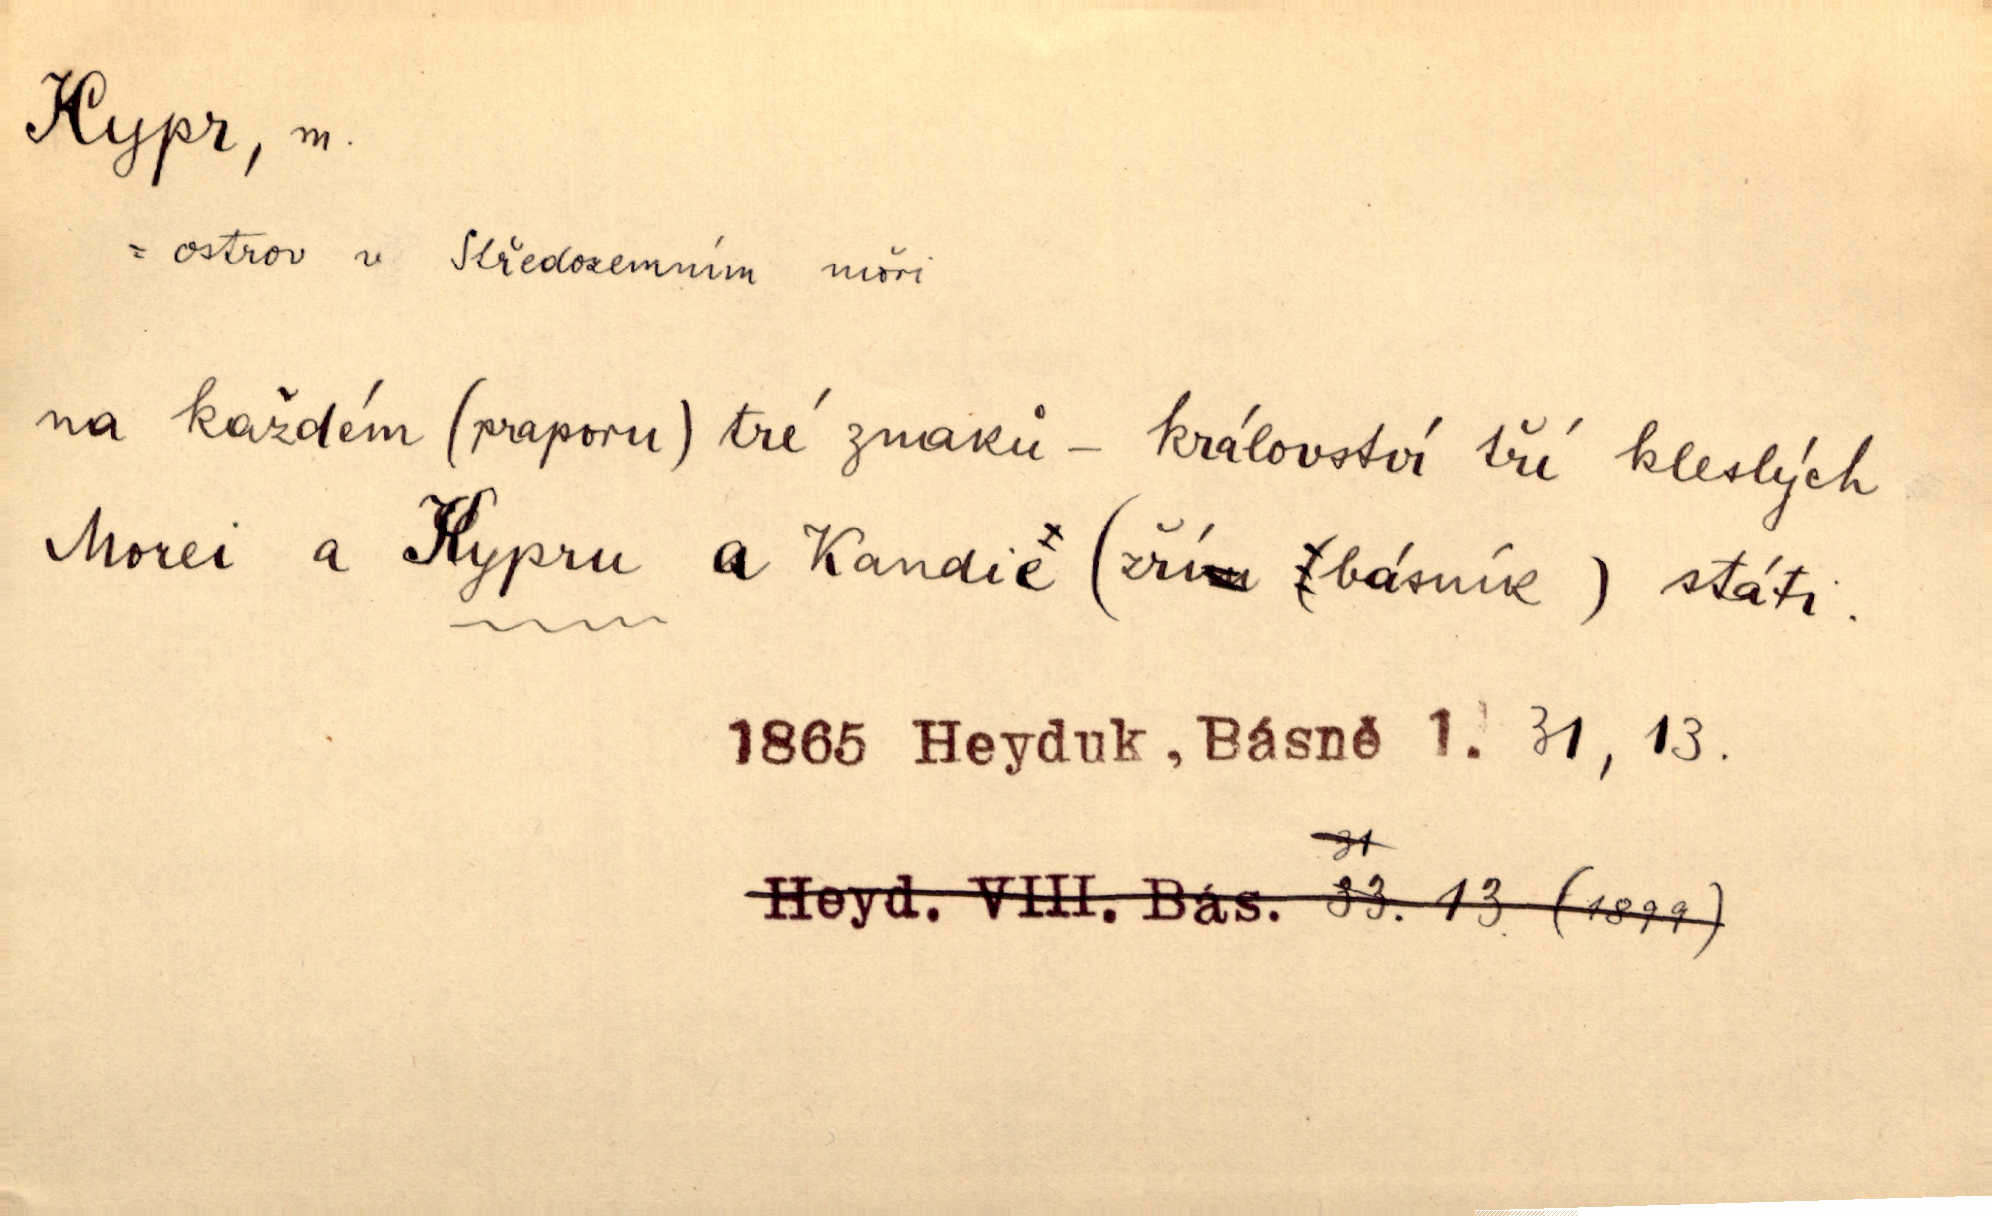 Kypr, m.
= ostrov v Středozemním moři
na každém (praporu) tré znaků – království tří kleslých
Morei a Kypru a Kandie (zří básník) státi.
1865 Heyduk, Básně 1. 31, 13.
31
Heyd. VIII. Bás. 33. 13. (1899)